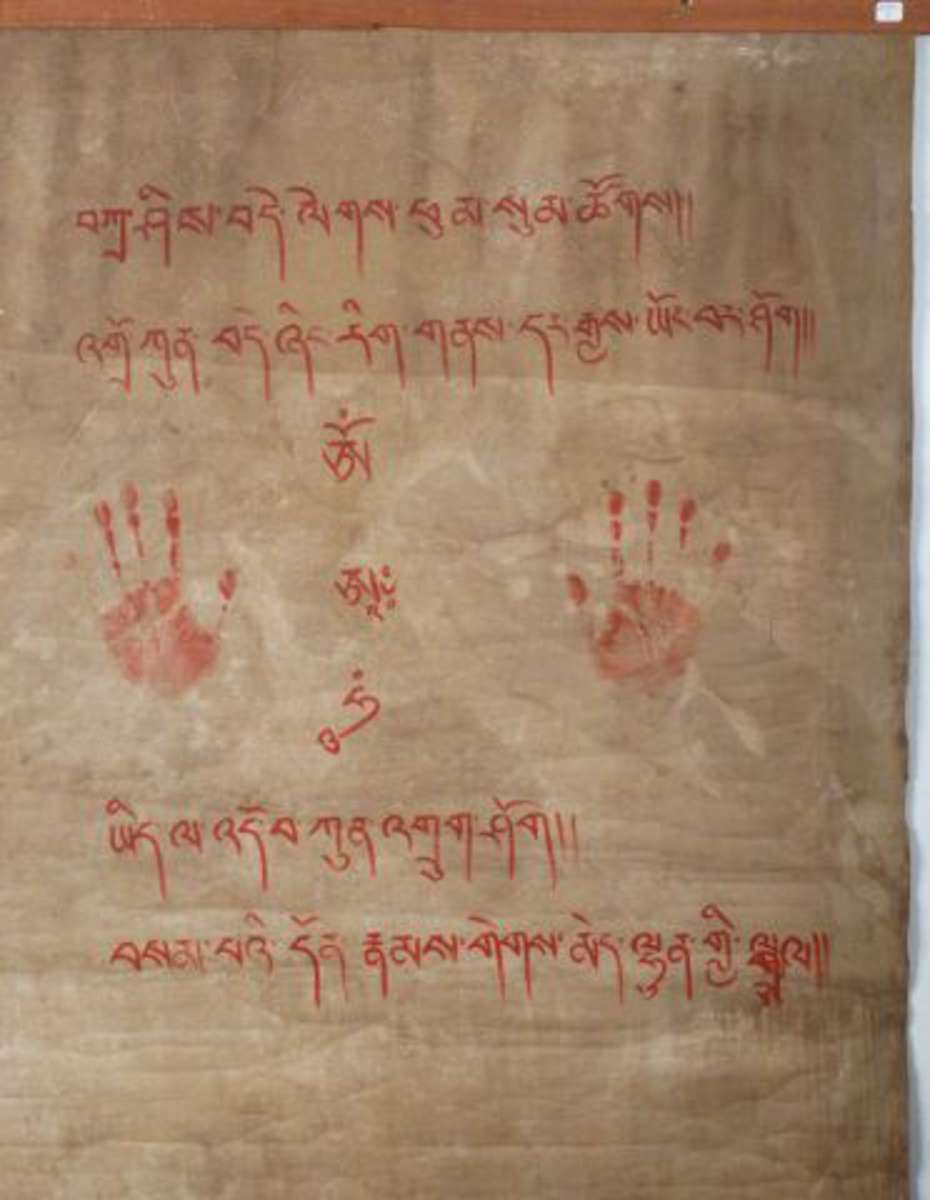 བཀྲ་ཤིས་བདེ་ལེགས་ཕུ་མ་སུམ་ཚོགས།།
འགྲོ་ཀུན་བདེ་ཞིང་རིག་གནས་དར་རྒྱས་ཡོང་བར་ཤོག།།
ཨོཾ
ཨཱཿ
ཧཱུྃ
ཡིད་ལ་འདོབ་ཀུན་འགྲུག་ཤོག།།
བསམ་པའི་དོན་རྣམས་གེགས་མེད་ལྷུན་གྱི་གྲུལ།།